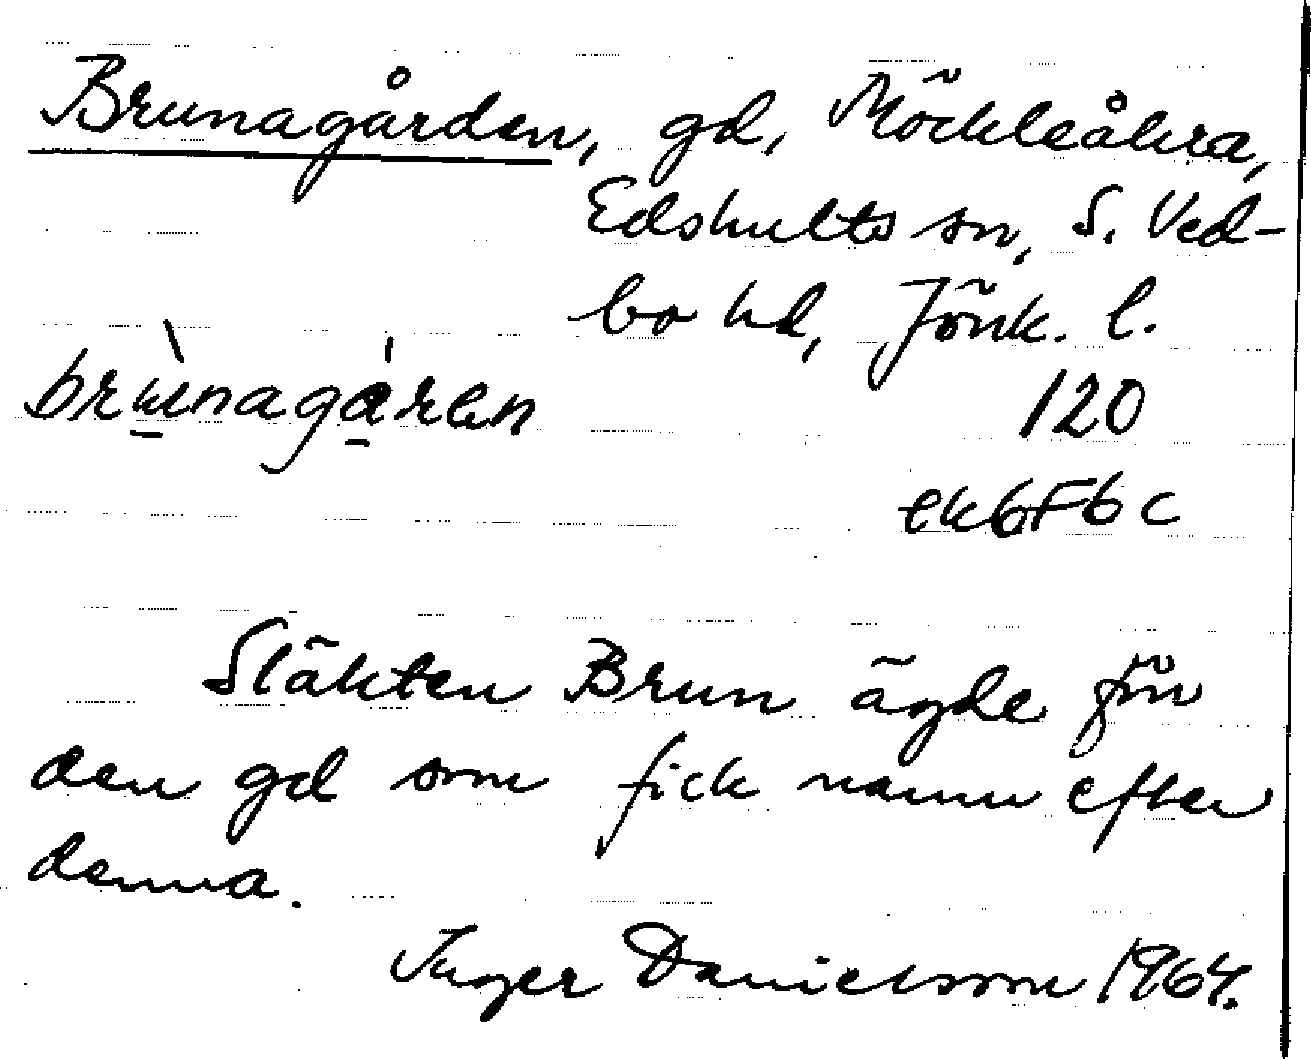 Brunagården, gd, Möckleåkra,
Edshults sn, S. Ved-
bo hd, Jönk. l.
brùnagáren 120
ek6F6c
Släkten Brun ägde förr
den gd som fick namn efter
denna.
Inger Danielsson 1964.